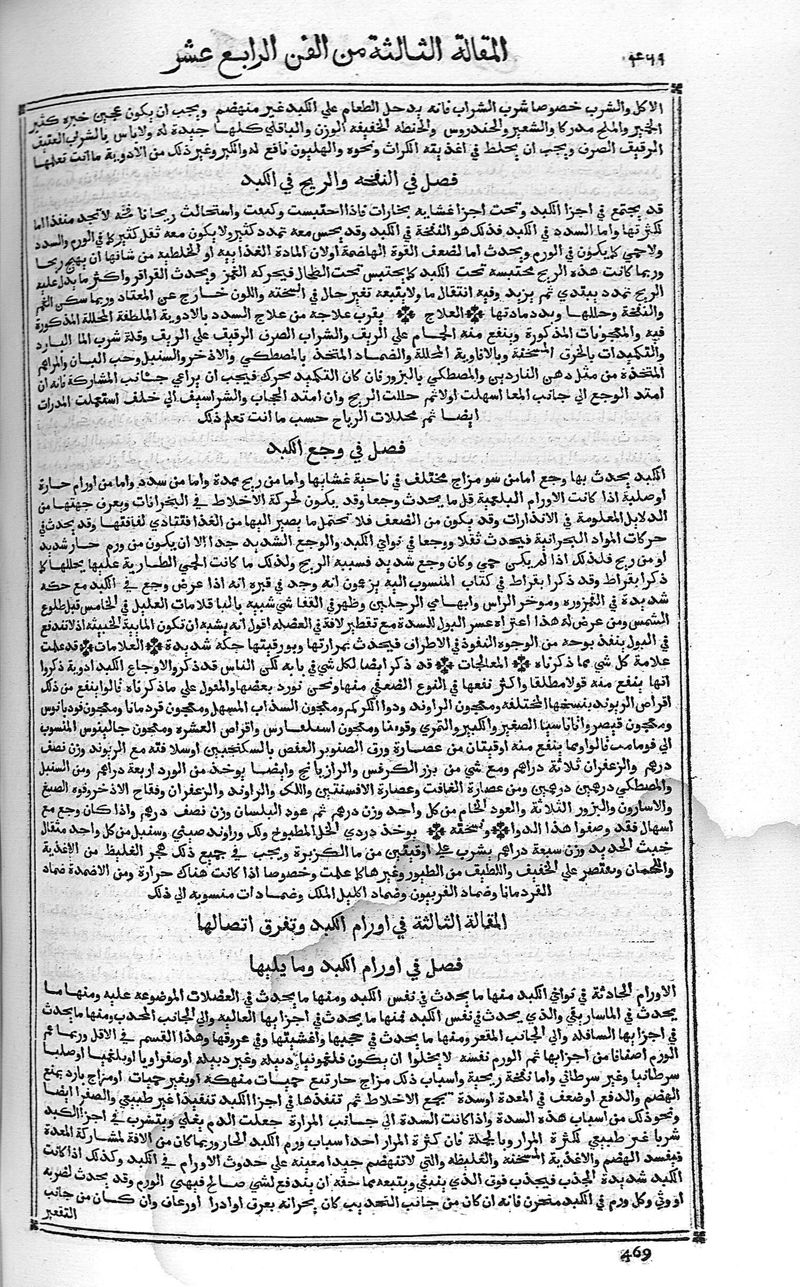 المقالة الثالثة من الفن الرابع عشر
٤٦٩
الاكل والشرب خصوصا شرب الشراب فانه يدخل الطعام علي الكبد غير منهضم ويجب ان يكون عجين خبزه كثير
الخمير والملح مدركا والشعير والخندروس والحنطه الخفيفه الوزن والباقلي كلها جيدة له ولاباس بالشراب العتيق
الرقيق الصرف ويجب ان يخلط في اغذيته الكراث ونحوه والهليون نافع له والكبر وغير ذلك من الادوية ما انت تعلمها
فصل في النفخه والريح في الكبد
قد يجتمع في اجزا الكبد وتحت اجزا غشايه بخارات فاذا احتبست وكثفت واستحالت ريحا نافخه لا تجد منفذا اما
لكثرتها واما السدد في الكبد فذلك هو النفخة في الكبد وقد يحس معه تمدد كثير ولا يكون معه ثقل كثير كما في الورم والسدد
ولا حمي كما يكون في الورم ويحدث اما لضعف القوة الهاضمة اولان المادة الغذايية او الخلطيه من شانها ان يهيج ريحا
وربما كانت هذه الريح محتبسه تحت الكبد كما يحتبس تحت الطحال فيحركه الغمز ويحدث القراقر واكثر ما يدل عليه
الريح تمدد يبتدي ثم يزيد وفيه انتقال ما ولا يتبعه تغير حال في السحنه واللون خارج عن المعتاد وربما سكن الغمز
والنفخة وحللها وبدد مادتها العلاج يقرب علاجه من علاج السدد بالادوية الملطفة المحللة المذكورة
فيه والمعجونات المذكورة وينفع منه الحمام علي الريق والشراب الصرف الرقيق علي الريق وقلة شرب الما البارد
والتكميدات بالخرق المسخنة وبالافاوية المحللة والضماد المتخذ بالمصطكي والاذخر والسنبل وحب البان والمراهم
المتخذة من مثل دهن الناردين والمصطكي بالبزور فان كان التكميد يحرك فيجب ان يراعي جانب المشاركة فانه ان
امتد الوجع الي جانب المعا اسهلت اولا ثم حللت الريح وان امتد الحجاب والشراسيف الي خلف استعملت المدرات
ايضا ثم محللات الرياح حسب ما انت تعلم ذلك
فصل في وجع الكبد
الكبد يحدث بها وجع اما من سو مزاج مختلف في ناحية غشايها واما من ريح ممددة واما من سدد واما من اورام حارة
او صلبة اذا كانت الاورام البلغمية قل ما يحدث وجعا وقد يكون لحركة الاخلاط في البحرانات ويعرف جهتها من
الدلايل المعلومة في الانذارات وقد يكون من الضعف فلا تحتمل ما يصير اليها من الغذا فتتاذي لثقافتها وقد يحدث في
حركات المواد البحرانية فيحدث ثقلا ووجعا في نواحي الكبد والوجع الشديد جدا الا ان يكون من ورم حار شديد
او من ريح فلذلك اذا لم يكن حمي وكان وجع شديد فسببه الريح ولذلك ما كانت الحمي الطارية عليها يحللها كما
ذكر ابقراط وقد ذكر ابقراط في كتاب المنسوب اليه يزعمون انه وجد في قبره انه اذا عرض وجع في الكبد مع حكة
شديدة في القمحدوه وموخر الراس وابهامي الرجلين وظهر في القفا شي شبيه بالباقلا مات العليل في الخامس قبل طلوع
الشمس ومن عرض له هذا اعتراه عسر البول للسدة مع تقطير لافة في العضله اقول انه يشبه ان تكون المايية الخبيثة اذ لا تندفع
في البول ينفذ بوجه من الوجوه النفوذ في الاطراف فيحدث بمرارتها وبورقيتها حكة شديدة العلامات قد علمت
علامة كل شي مما ذكرناه المعالجات قد ذكر ايضا لكل شي في بابه لكن الناس قد ذكروا لاوجاع الكبد ادوية ذكروا
انها ينفع منه قولا مطلقا واكثر نفعها في النوع الضعفي منها ونحن نورد بعضها والمعول علي ما ذكرناه قالوا ينفع من ذلك
اقراص الريوند بنسخها المختلفه ومعجون الراوند ودوا الكركم ومعجون السذاب المسهل ومعجون قردمانا ومعجون فوديانوس
ومعجون قيصر واثاناسيا الصغير والكبير والتمري وفومنا ومعجون استعارس واقراص العشره ومعجون جالينوس المنسوب
الي قومامت قالوا ومما ينفع منه اوقيتان من عصارة ورق الصنوبر الغض بالسكنجبين او سلاقته مع الريوند وزن نصف
درهم والزعفران ثلاثة دراهم ومع شي من بزر الكرفس والرازيانج وايضا يوخذ من الورد اربعة دراهم ومن السنبل
والمصطكي درهمين درهمين ومن عصارة الغافت وعصارة الافسنتين واللك والراوند والزعفران وفقاح الاذخر وفوه الصبغ
والاسارون والبزور الثلاثة والعود الخام من كل واحد وزن درهم ثم عود البلسان وزن نصف درهم واذا كان وجع مع
اسهال فقد وصفوا هذا الدوا ونسخته يوخذ دردي الخل المطبوخ ولك وراوند صيني وسنبل من كل واحد مثقال
خبث الحديد وزن سبعة دراهم يشرب علي اوقيتين من ما الكزبرة ويجب في جميع ذلك هجر الغليظ من الاغذية
واللحمان ويقتصر علي الخفيف واللطيف من الطيور وغيرها كما علمت وخصوصا اذا كانت هناك حرارة ومن الاضمدة ضماد
القردمانا وضماد الفربيون وضماد اكليل الملك وضمادات منسوبه الي ذلك
المقالة الثالثة في اورام الكبد وتفرق اتصالها
فصل في اورام الكبد وما يليها
الاورام الحادثة في نواحي الكبد منها ما يحدث في نفس الكبد ومنها ما يحدث في العضلات الموضوعه عليه ومنها ما
يحدث في الماساريقي والذي يحدث في نفس الكبد فمنها ما يحدث في اجزا بها العاليه والي الجانب المحدب ومنها ما يحدث
في اجزا بها السافله والي الجانب المقعر ومنها ما يحدث في حجبها واغشيتها وفي عروقها وهذا القسم في الاقل وربما عم
الورم اصنافا من اجزابها ثم الورم نفسه لا يخلوا ان يكون فلغمونيا دبيله وغير دبيله او صفراويا او بلغميا او صلبا
سرطانيا وغير سرطاني واما نفخة ريحية واسباب ذلك مزاج حار تتبع حميات منهكه او بغير حميات او مزاج بارد يمنع
الهضم والدفع او ضعف في المعدة او سدة تجمع الاخلاط ثم تنفذها في اجزا الكبد تنفيذا غير طبيعي والصفرا ايضا
ونحو ذلك من اسباب هذه السدة واذا كانت السدة الي جانب المرارة جعلت الدم يغلي ويتشرب في اجزا الكبد
شربا غير طبيعي لكثرة المرار وبالجملة فان كثرة المرار احد اسباب ورم الكبد الحار وربما كان من الافة لمشاركة المعدة
فيفسد الهضم والاغذية المسخنة والغليظه والتي لا تنهضم جيدا معينه علي حدوث الاورام في الكبد وكذلك اذا كانت
الكبد شديدة الجذب فيجذب فوق الذي ينبغي ويتبعه ما حقه ان يندفع لشي صالح فيهيي الورم وقد يحدث لضربه
او وثي وكل ورم في الكبد متحزن فانه ان كان من جانب التحديب كان بحرانه بعرق او ادرار او رعاف وان كان من جانب
التقعير
469